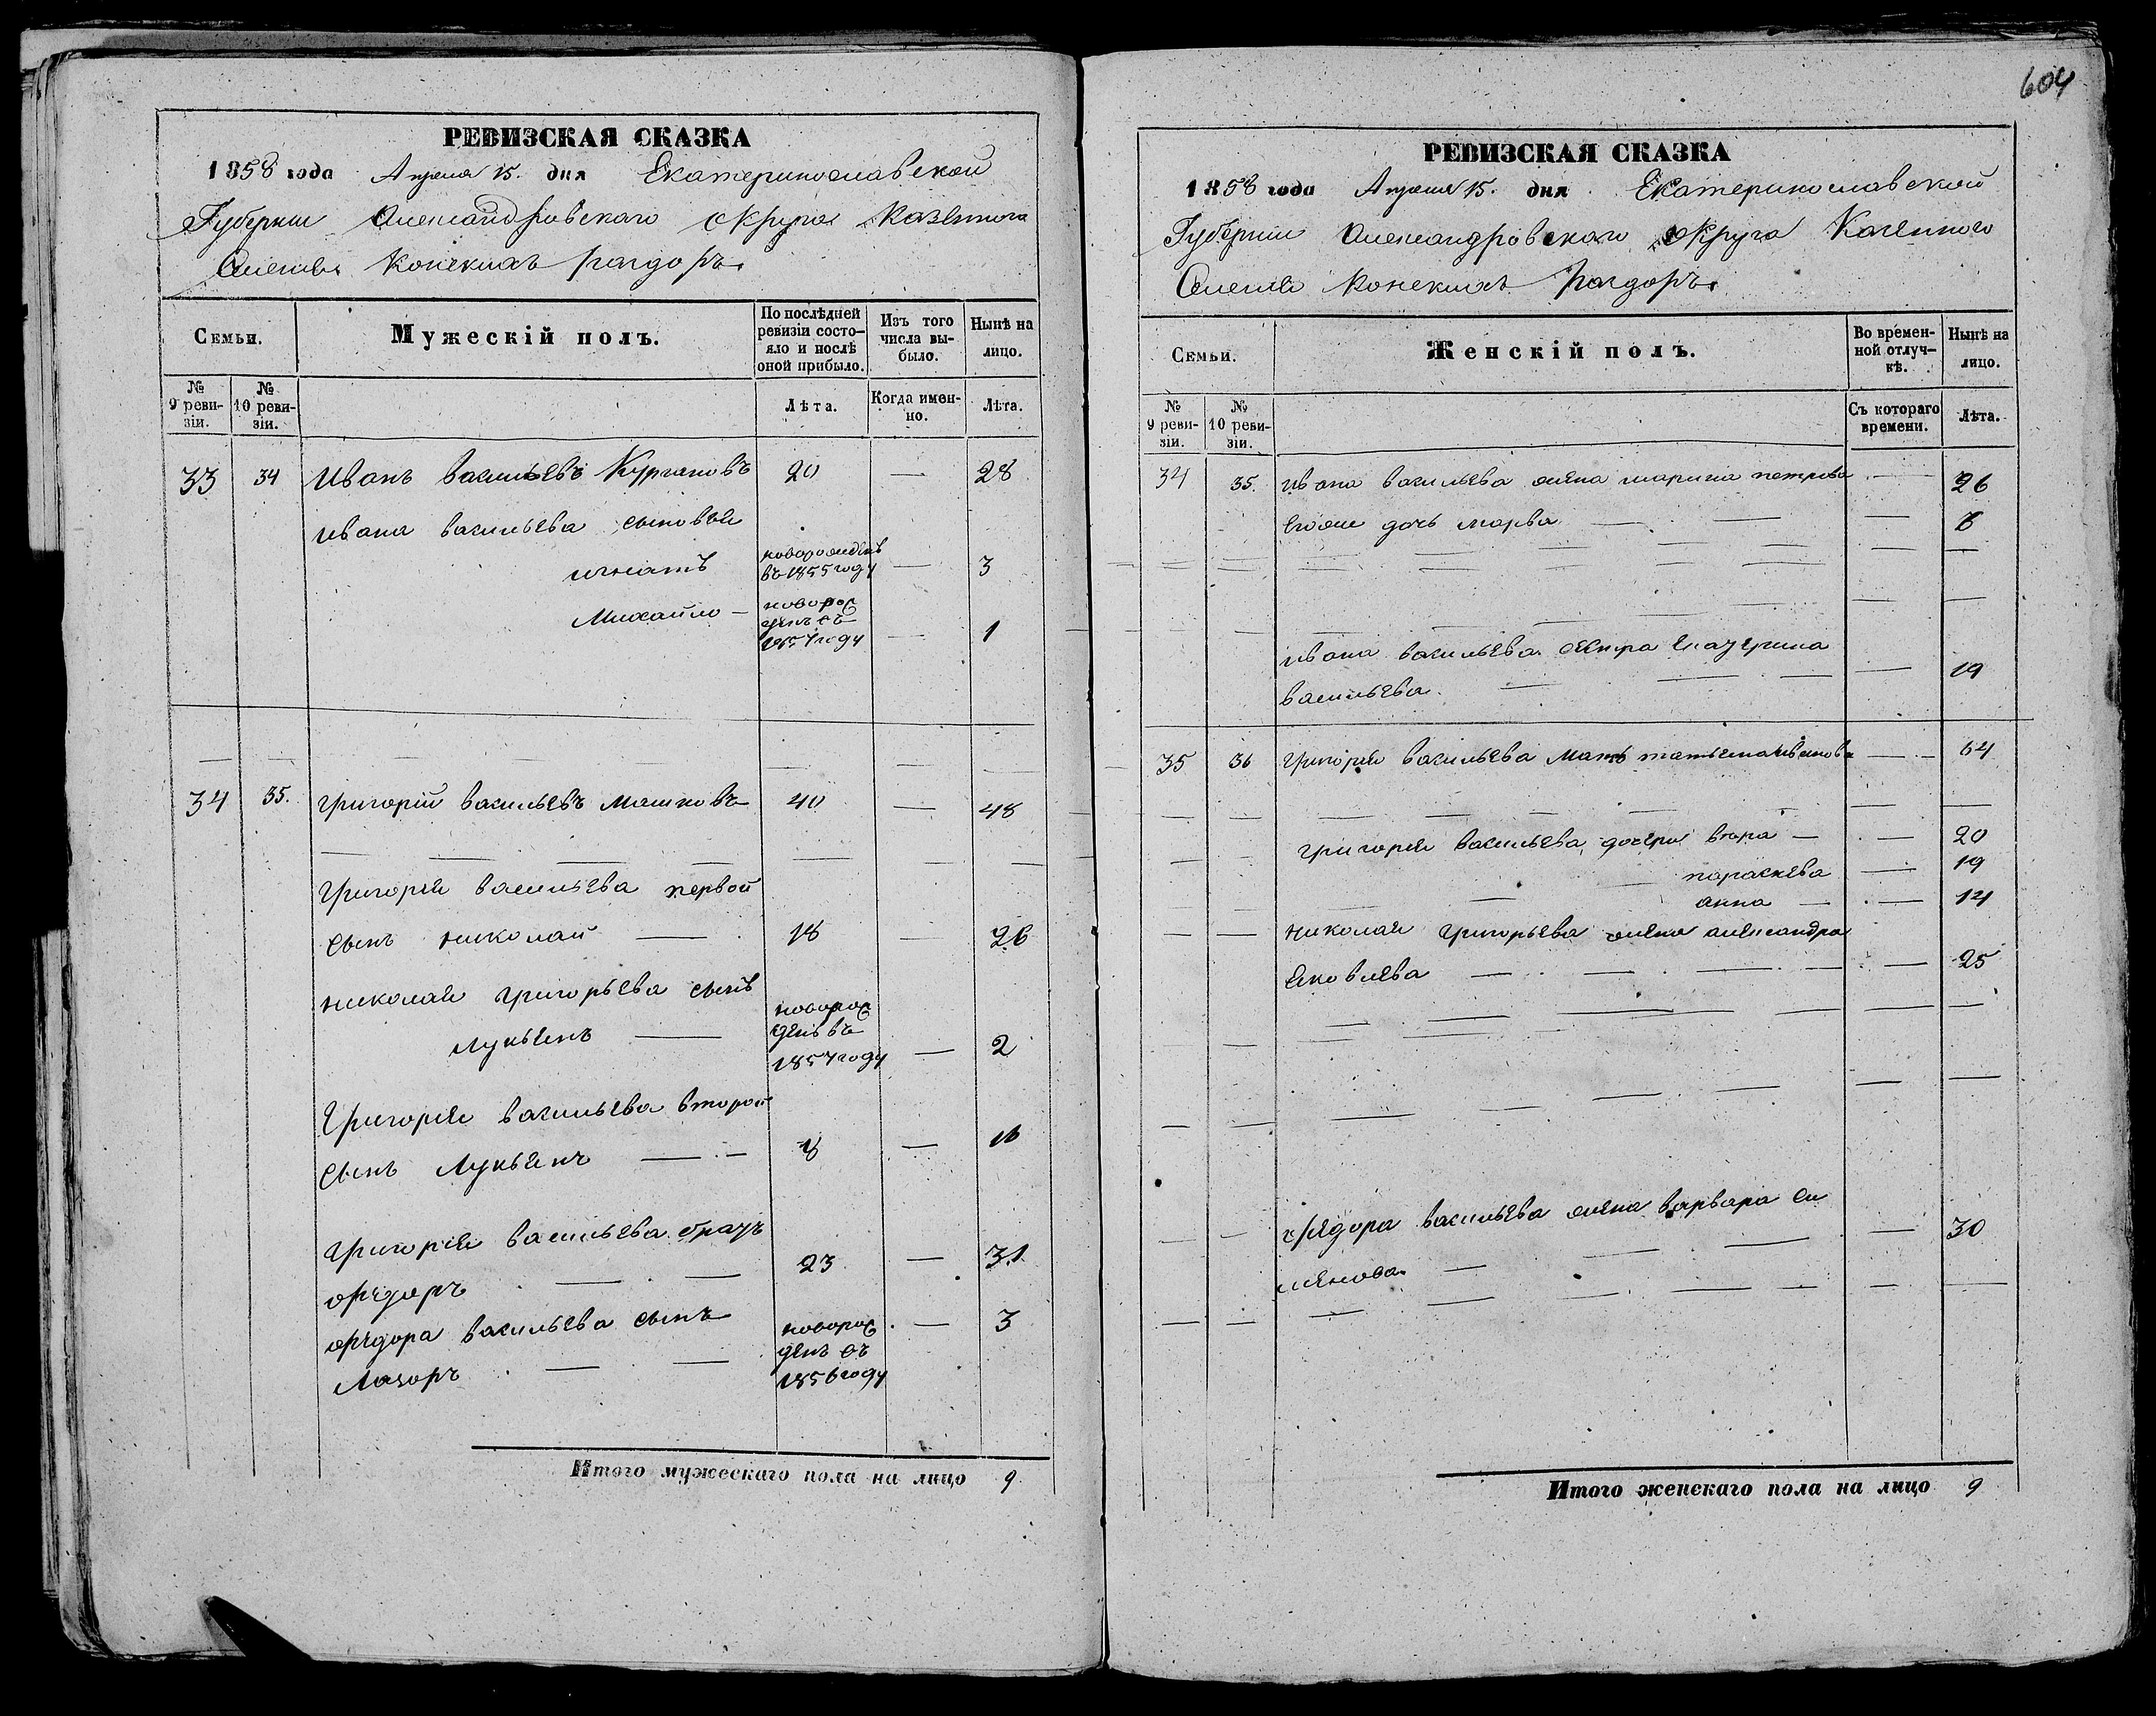 РЕВИЗСКАЯ СКАЗКА
1858 года Апреля 15. дня Екатеринославской
Губернии Александровскаго округа Казенного
Селения Конскихъ раздоръ.
Семьи.
Мужескій полъ.
По послѣдней ревизіи состояло и послѣ оной прибыло.
Изъ того числа выбыло.
Нынѣ на лицо.
№ 9 ревизіи.
№ 10 ревизіи.
Лѣта.
Когда именно.
Лѣта.
33 34 Иванъ васильевъ 20 — 28
ивана васильева сыновья
игнатъ новорожденъ въ 1855 году — 3
Михайло — новорожденъ въ 1857 году — 1
34 35. григорій васильевъ Машковъ 40 — 48
григорія васильева первой
сынъ николай — 18 — 26
николая григорьева сынъ
лукьянъ — новорожденъ въ 1857 году — 2
Григорія васильева второй
сынъ Лукьянъ — 8 — 16
григорія васильева братъ
ѳедоръ — 23 — 31
ѳедора васильева сынъ
Лазоръ — новорожденъ въ 1856 году — 3
Итого мужескаго пола на лицо 9
604
РЕВИЗСКАЯ СКАЗКА
1858 года Апреля 15. дня Екатеринославской
Губернии Александровскаго округа Казенного
Селения Конскихъ Раздоръ.
Семьи.
Женскій полъ.
Во временной отлучкѣ.
Нынѣ на лицо.
№ 9 ревизіи.
№ 10 ревизіи.
Съ котораго времени.
Лѣта.
34 35. ивана васильева жена марина петрова — 26
его же дочь марва — 6
ивана васильева сестра
васильева. — 19
35 36 григорія васильева Мать татьяна иванова — 64
григорія васильева, дочери вѣра — 20
параскева — 19
анна — 14
николая григорьева жена александра
яковлева — 25
ѳедора васильева жена варвара се
менова. — 30
Итого женскаго пола на лицо 9